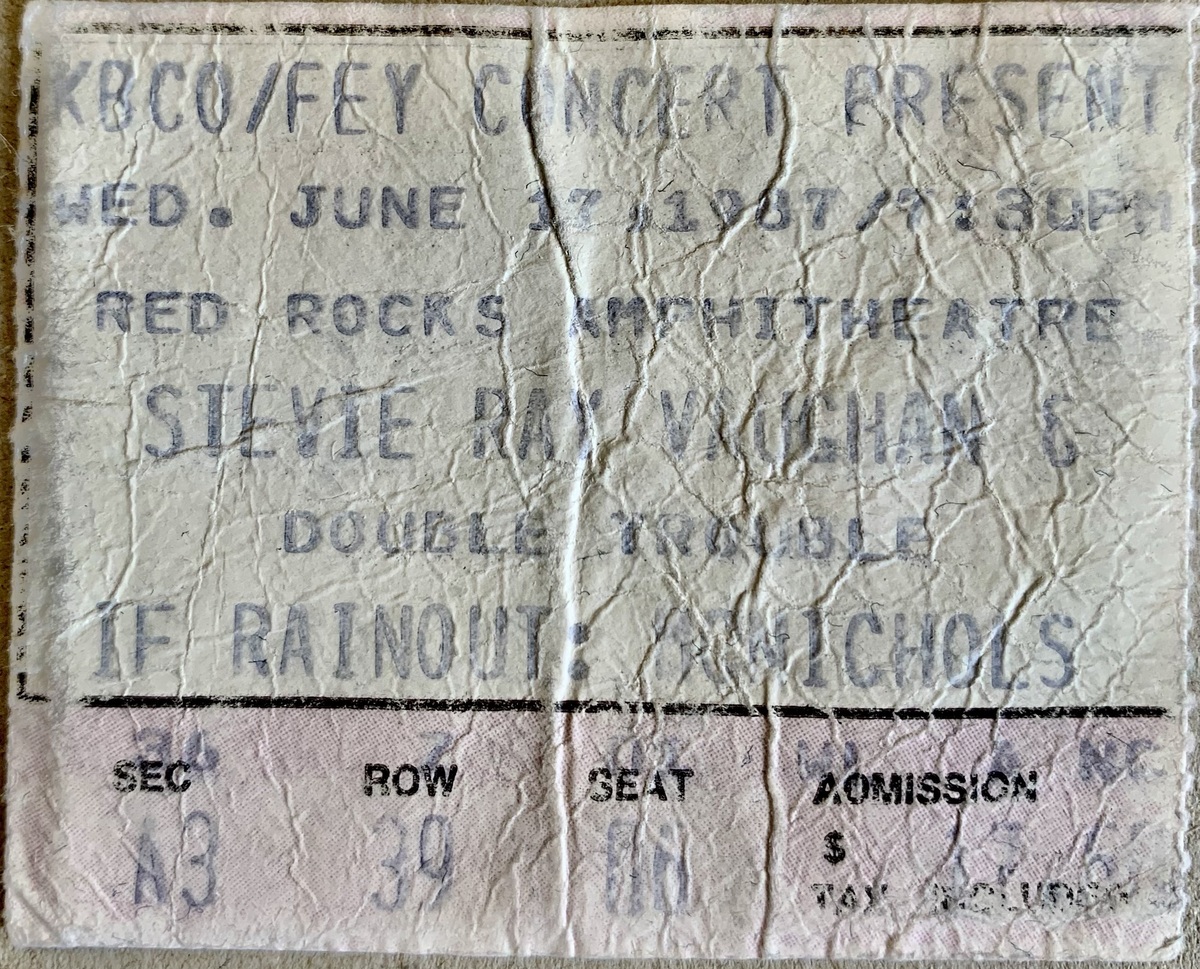 KBCO/FEY CONCERT PRESENT
WED. JUNE 17,1987/7:30PM
RED ROCKS AMPHITHEATRE
STEVIE RAY VAUGHAN &
DOUBLE TROUBLE
IF RAINOUT: MCNICHOLS
SEC ROW SEAT ADMISSION
A3 39 $
TAX INCLUDED